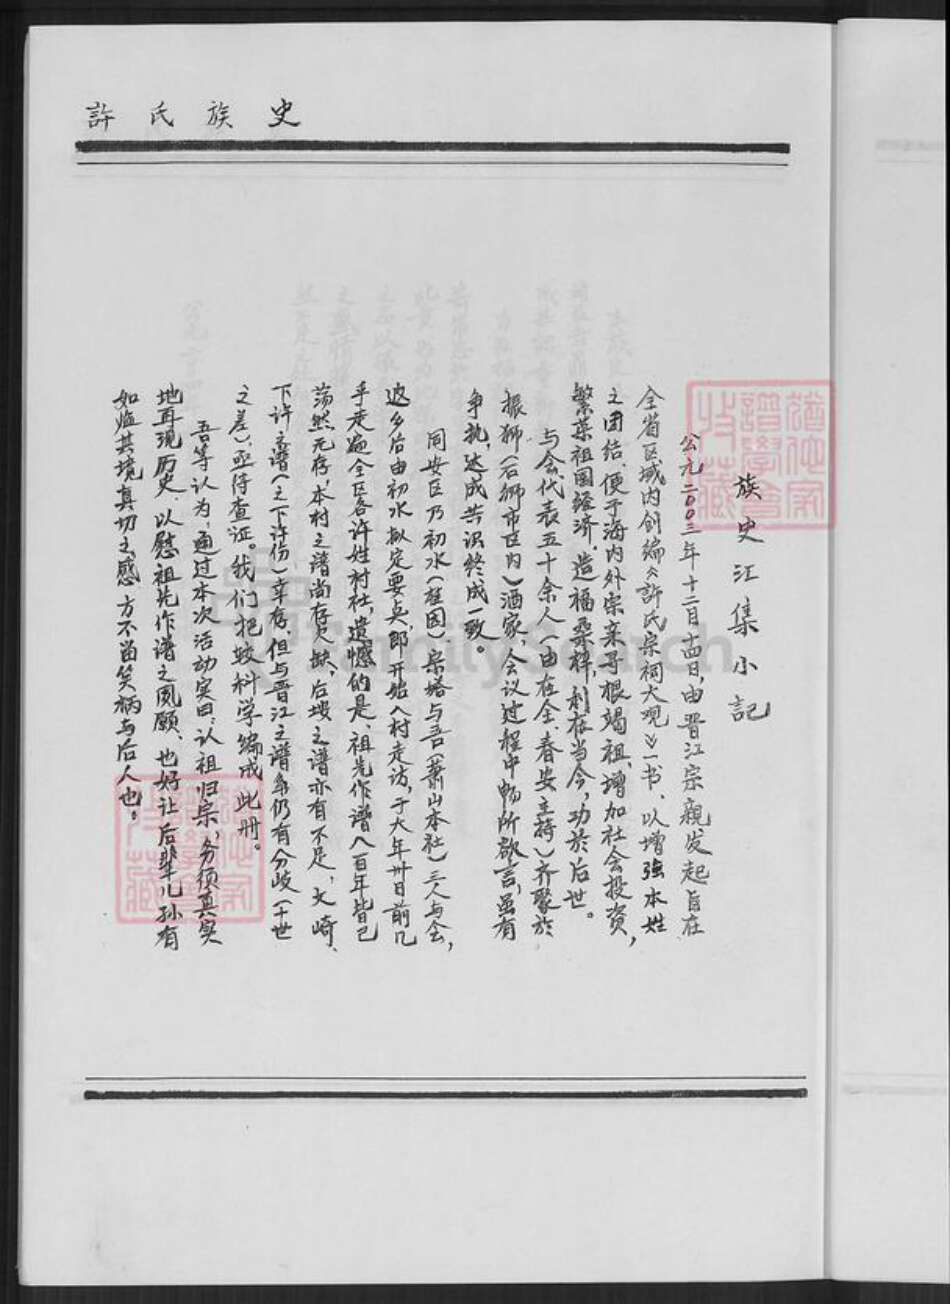 許氏族史
族史江集小記
公元二00三年十二月十四日,由晋江宗親发起旨在
全省区域内创编《許氏宗祠大观》一书、以增強本姓
之团结、便于海内外宗亲寻根竭祖,增加社会投资,
繁荣祖国经济、造福桑梓,利在当今,功於后世。
与会代表五十余人(由在全、春安主持)齐聚於
振狮(石狮市区内)酒家,会议过程中畅所欲言,虽有
争执达成共识终成一致。
同安区乃初水(桂园)宗塔与吾(蕭山本社)三人与会,
返乡后由初水拟定要点,即开始入村走访,于大年卅日前几
乎走遍全区各许姓村社,遗憾的是、祖先作谱八百年皆已
荡然无存,本村之谱尚存欠缺、后垵之谱亦有不足,大崎、
下许之谱(之下许份)幸存,但与晋江之谱系仍有分歧(十世
之差)、亟待查证。我们把较科学编成此册。
吾等认为,通过本次活动实曰:认祖归宗,务须真实
地再现历史、以慰祖先作谱之夙願、也好让后辈儿孙有
如临其境真切之感,方不留笑柄与后人也。
譜學會收藏
譜學會收藏
FamilySearch